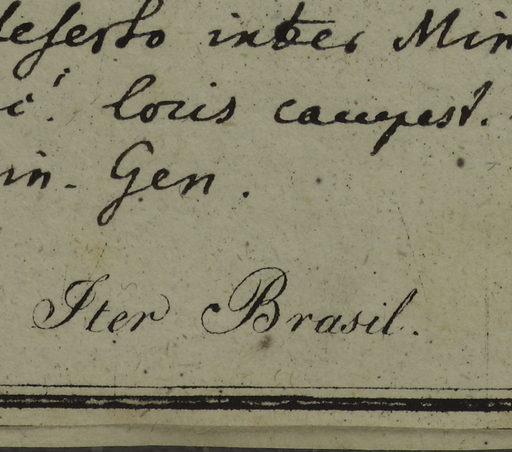 deserto inter Min
i. locis campest.
in. Gen.
Iter Brasil.